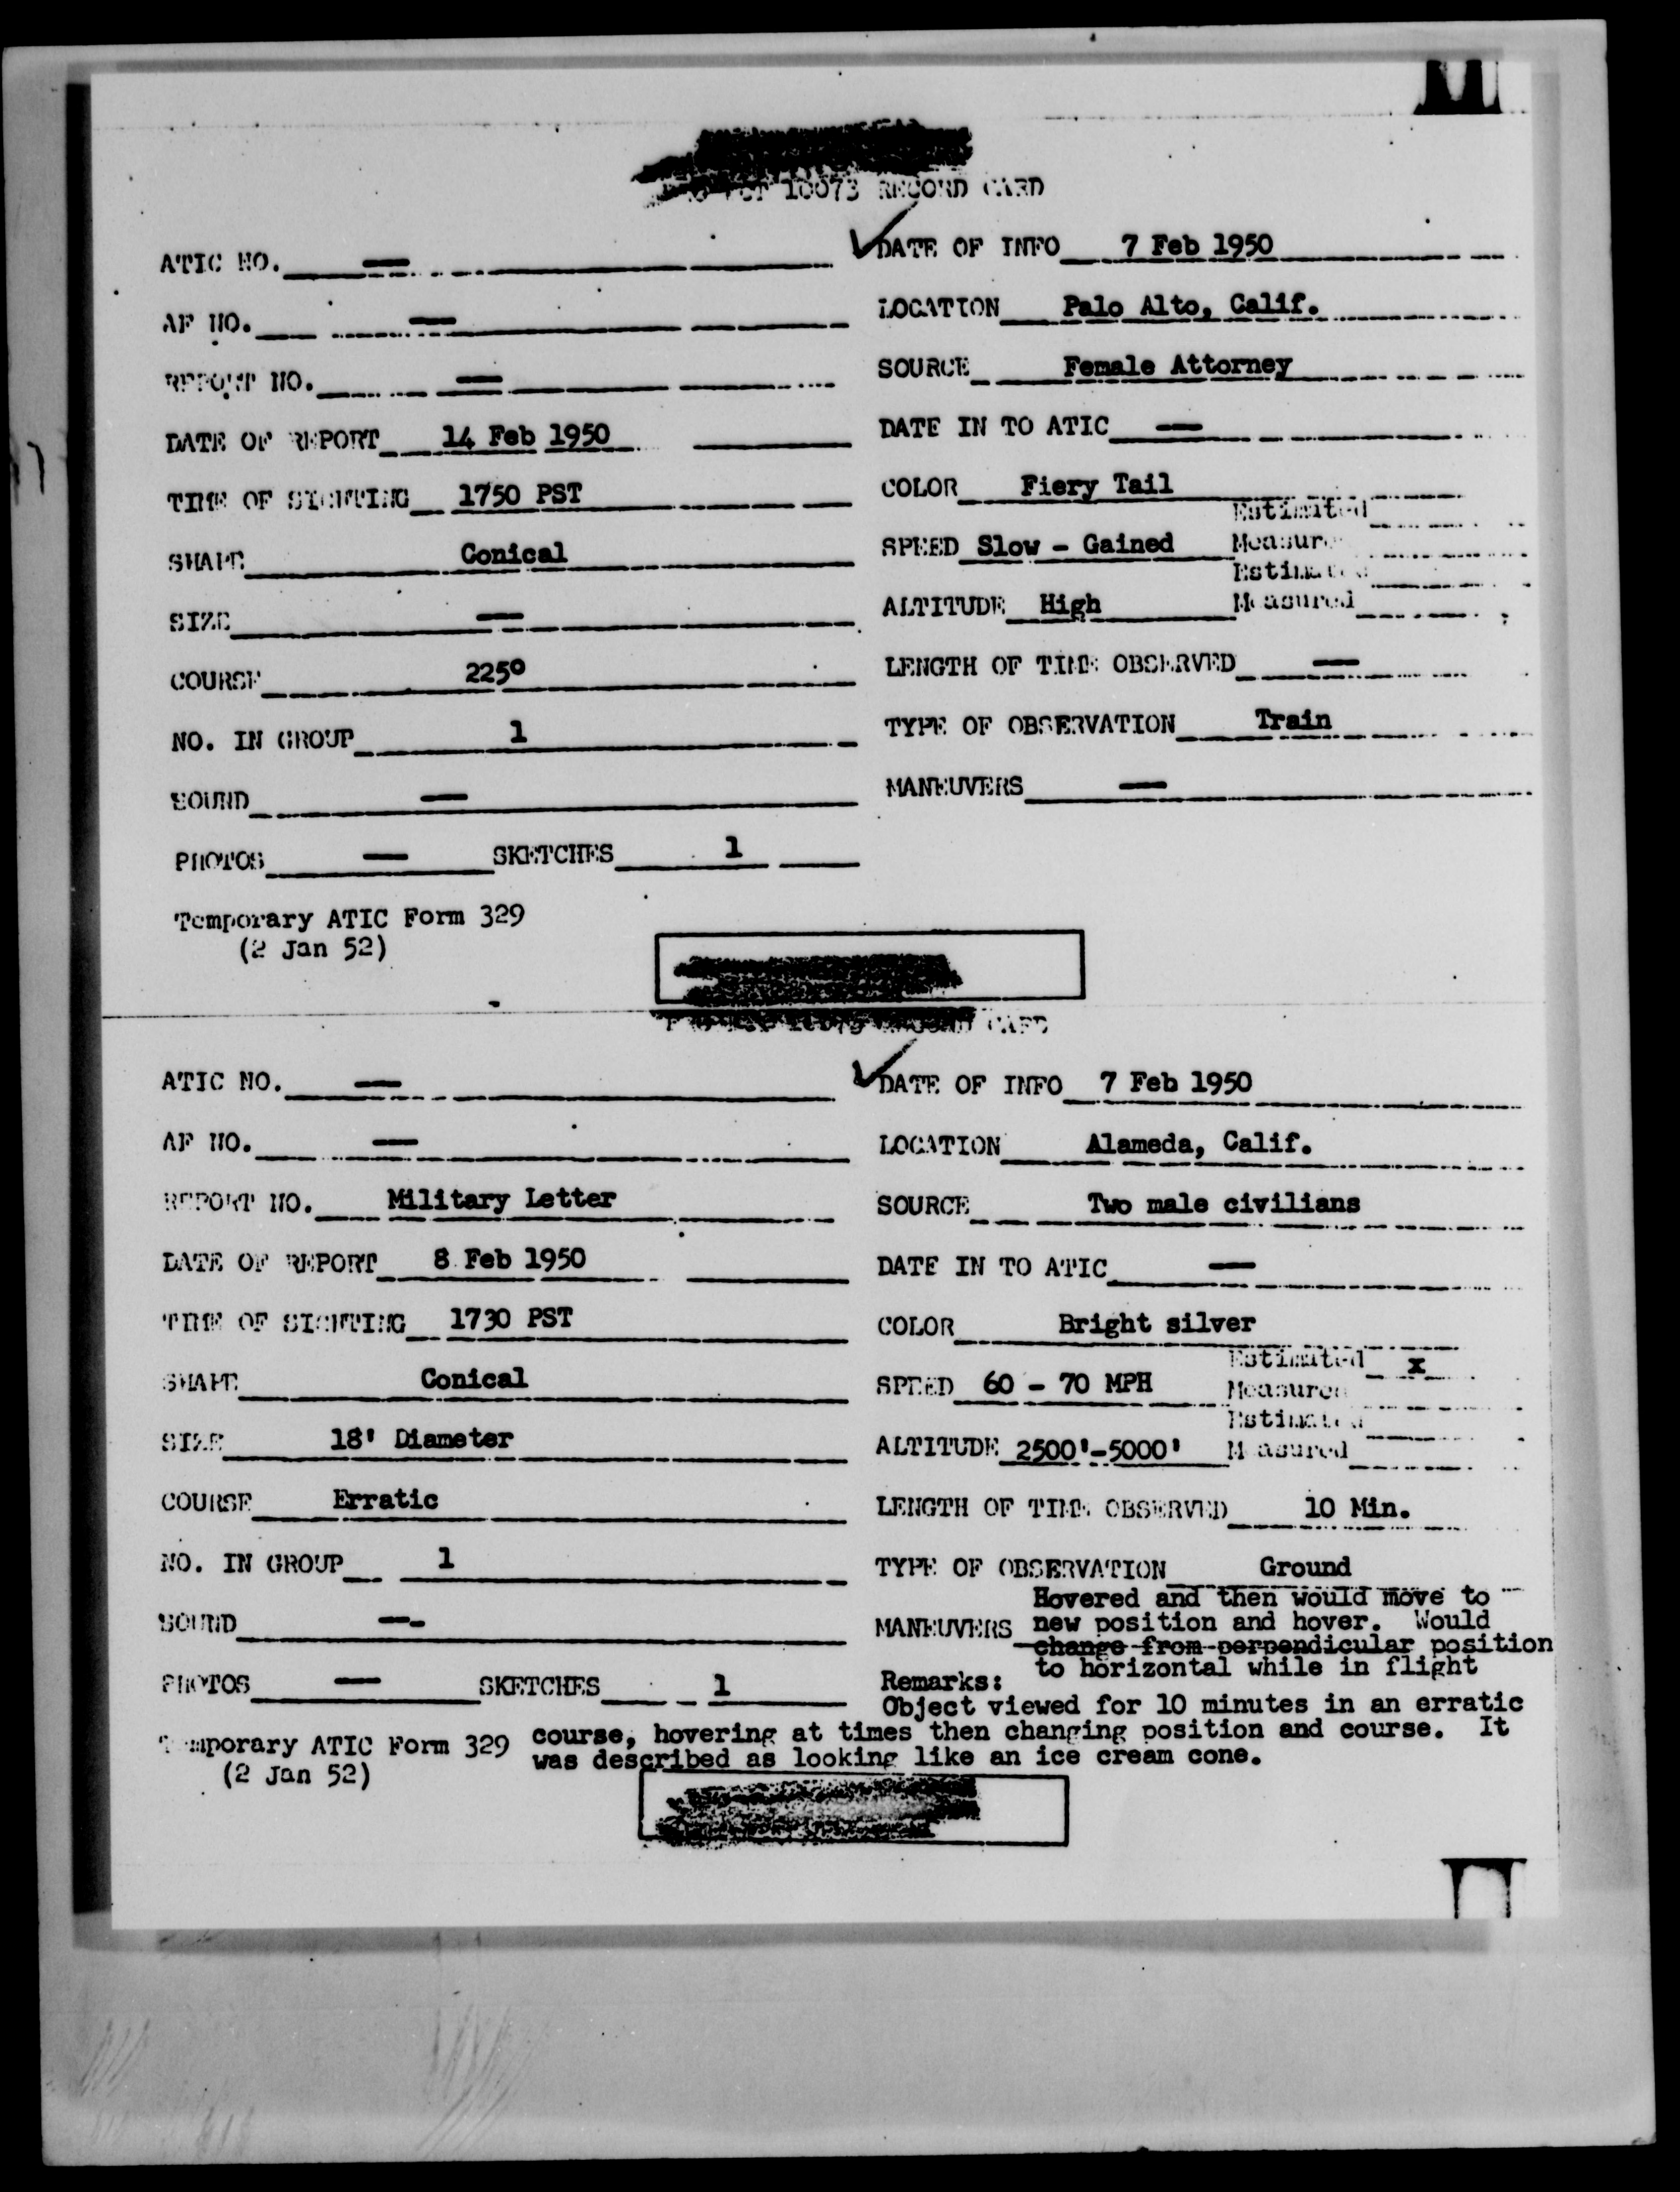 10073 RECORD CARD
ATIC NO. —
AF NO. —
REPORT NO. —
DATE OF REPORT 14 Feb 1950
TIME OF SIGHTING 1750 PST
SHAPE Conical
SIZE —
COURSE 225°
NO. IN GROUP 1
SOUND —
PHOTOS — SKETCHES 1
Temporary ATIC Form 329
(2 Jan 52)
DATE OF INFO 7 Feb 1950
LOCATION Palo Alto, Calif.
SOURCE Female Attorney
DATE IN TO ATIC —
COLOR Fiery Tail
Estimated
SPEED Slow - Gained Measured
Estimated
ALTITUDE High Measured
LENGTH OF TIME OBSERVED —
TYPE OF OBSERVATION Train
MANEUVERS —
10073 RECORD CARD
ATIC NO. —
AF NO. —
REPORT NO. Military Letter
DATE OF REPORT 8 Feb 1950
TIME OF SIGHTING 1730 PST
SHAPE Conical
SIZE 18' Diameter
COURSE Erratic
NO. IN GROUP 1
SOUND —-
PHOTOS — SKETCHES 1
Temporary ATIC Form 329
(2 Jan 52)
DATE OF INFO 7 Feb 1950
LOCATION Alameda, Calif.
SOURCE Two male civilians
DATE IN TO ATIC —
COLOR Bright silver
Estimated x
SPEED 60 - 70 MPH Measured
Estimated
ALTITUDE 2500'-5000' Measured
LENGTH OF TIME OBSERVED 10 Min.
TYPE OF OBSERVATION Ground
Hovered and then would move to
MANEUVERS new position and hover. Would
change from perpendicular position
to horizontal while in flight
Remarks:
Object viewed for 10 minutes in an erratic
course, hovering at times then changing position and course. It
was described as looking like an ice cream cone.